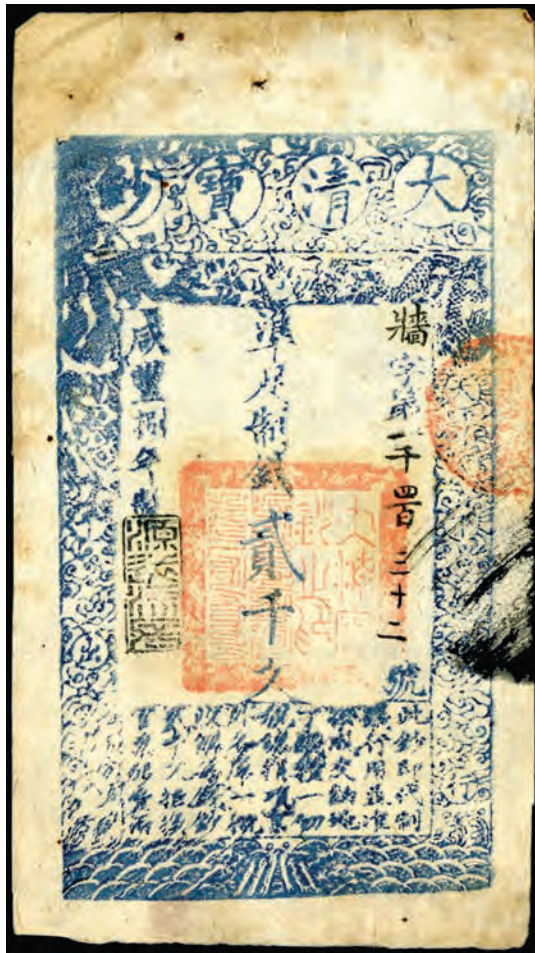 大清寶鈔
牆字第二千四百三十二號
準足制錢貳千文
咸豐捌年製
此鈔即代制
錢行用並准
按成交納地
丁錢糧一切
稅課捐項京
外各庫一概
收解每錢鈔
貳千文抵換
官票銀壹兩